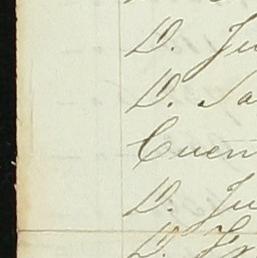 D. Ju
D. Sa
Cuen
D. Ju
D. Fr